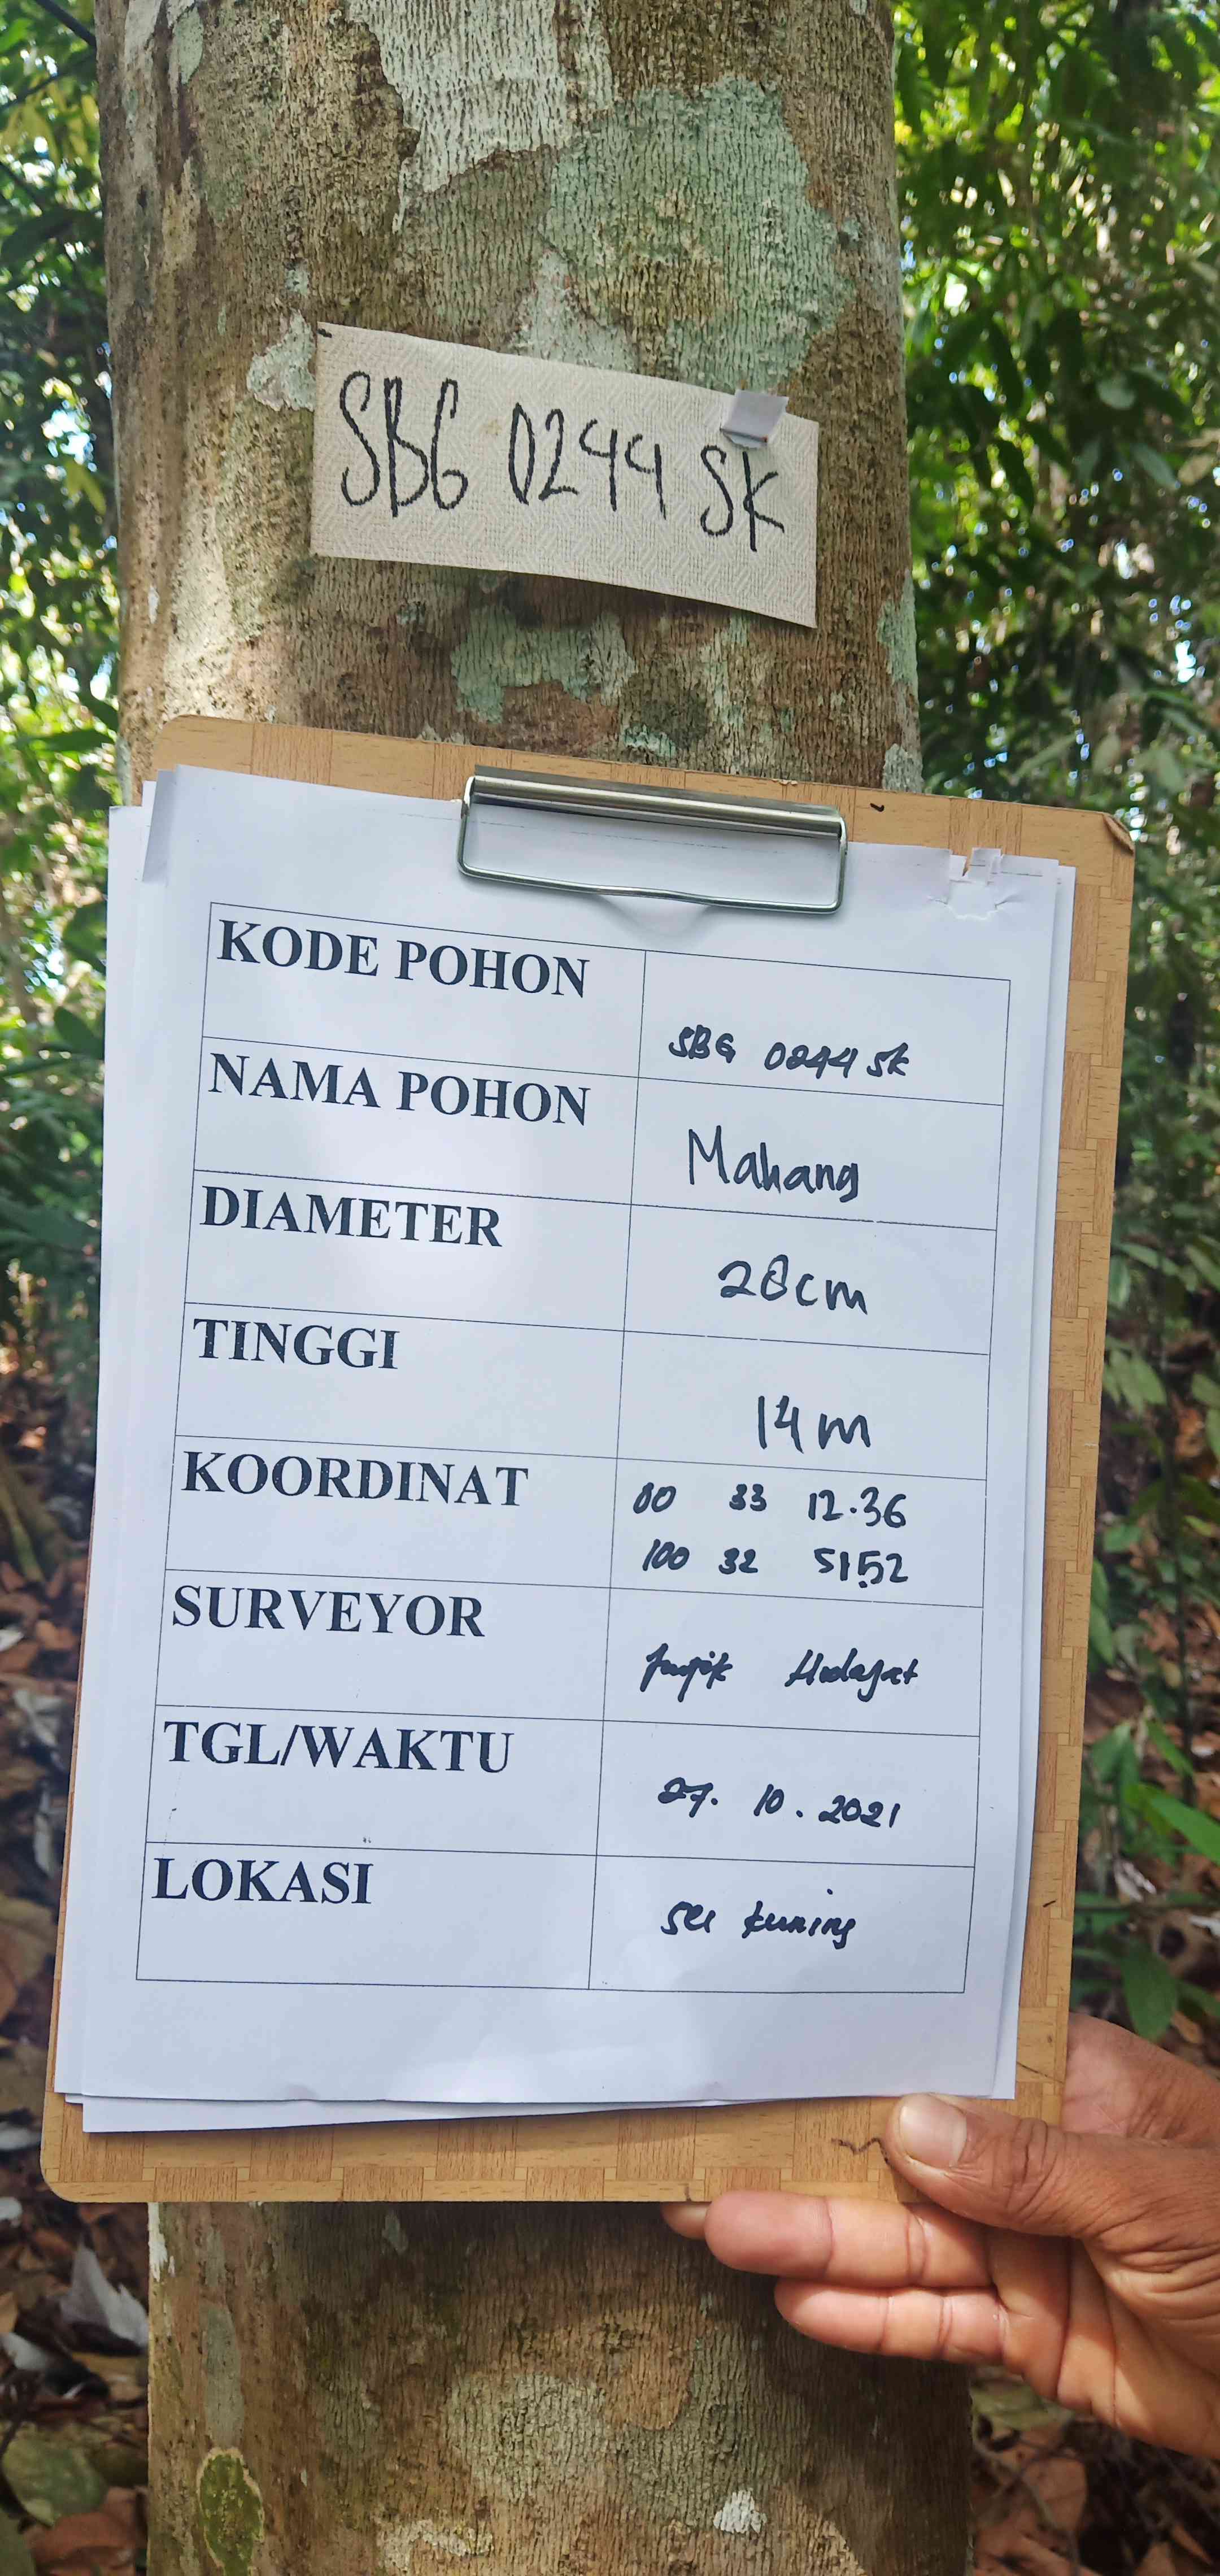 SBG 0244 SK
KODE POHON
SBG 0244 SK
NAMA POHON
Mahang
DIAMETER
28cm
TINGGI
14m
KOORDINAT
00 33 12.36
100 32 51.52
SURVEYOR
Hidayat
TGL/WAKTU
27. 10. 2021
LOKASI
sei kuning